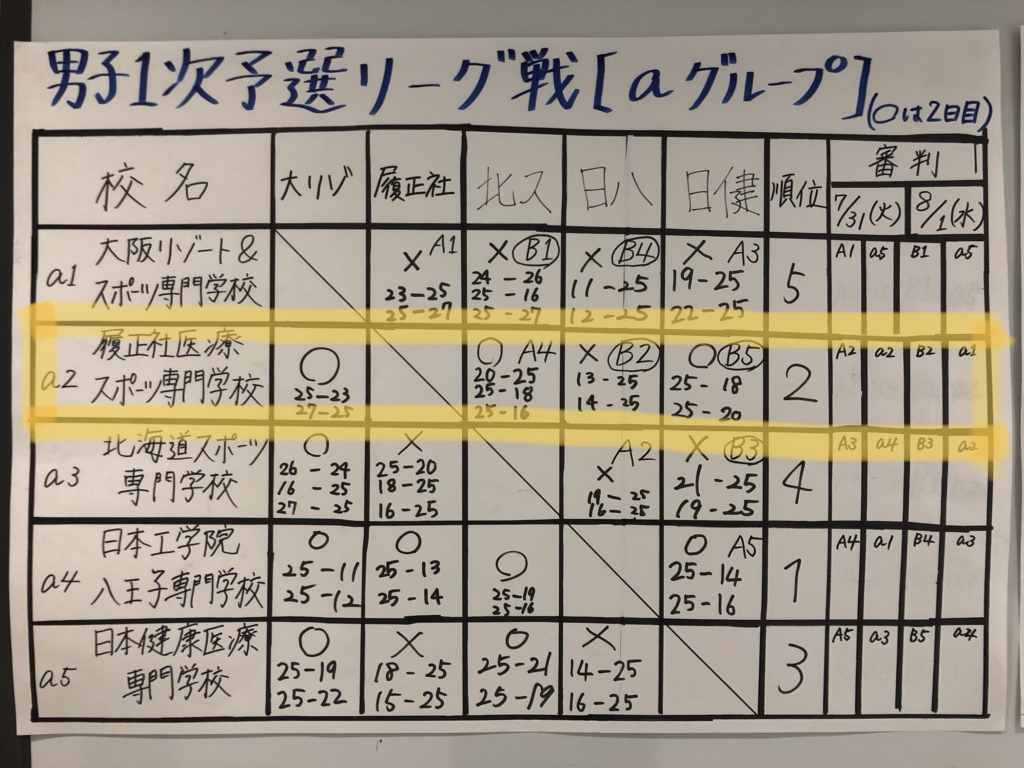 男子1次予選リーグ戦[aグループ]
(○は2日目)
校名 大リゾ 履正社 北ス 日八 日健 順位 審判
7/31(火) 8/1(水)
a1 大阪リゾート&スポーツ専門学校
×A1 ×B1 ×B4 ×A3 5 A1 a5 B1 a5
23-25 24-26 11-25 19-25
25-27 25-16 12-25 22-25
25-27
a2 履正社医療スポーツ専門学校
○ ○A4 ×B2 ○B5 2 A2 a2 B2 a1
25-23 20-25 13-25 25-18
27-25 25-18 14-25 25-20
25-16
a3 北海道スポーツ専門学校
○ × ×A2 ×B3 4 A3 a4 B3 a2
26-24 25-20 19-25 21-25
16-25 18-25 16-25 19-25
27-25 16-25
a4 日本工学院八王子専門学校
○ ○ ○ ○A5 1 A4 a1 B4 a3
25-11 25-13 25-19 25-14
25-12 25-14 25-16 25-16
a5 日本健康医療専門学校
○ × ○ × 3 A5 a3 B5 a4
25-19 18-25 25-21 14-25
25-22 15-25 25-19 16-25